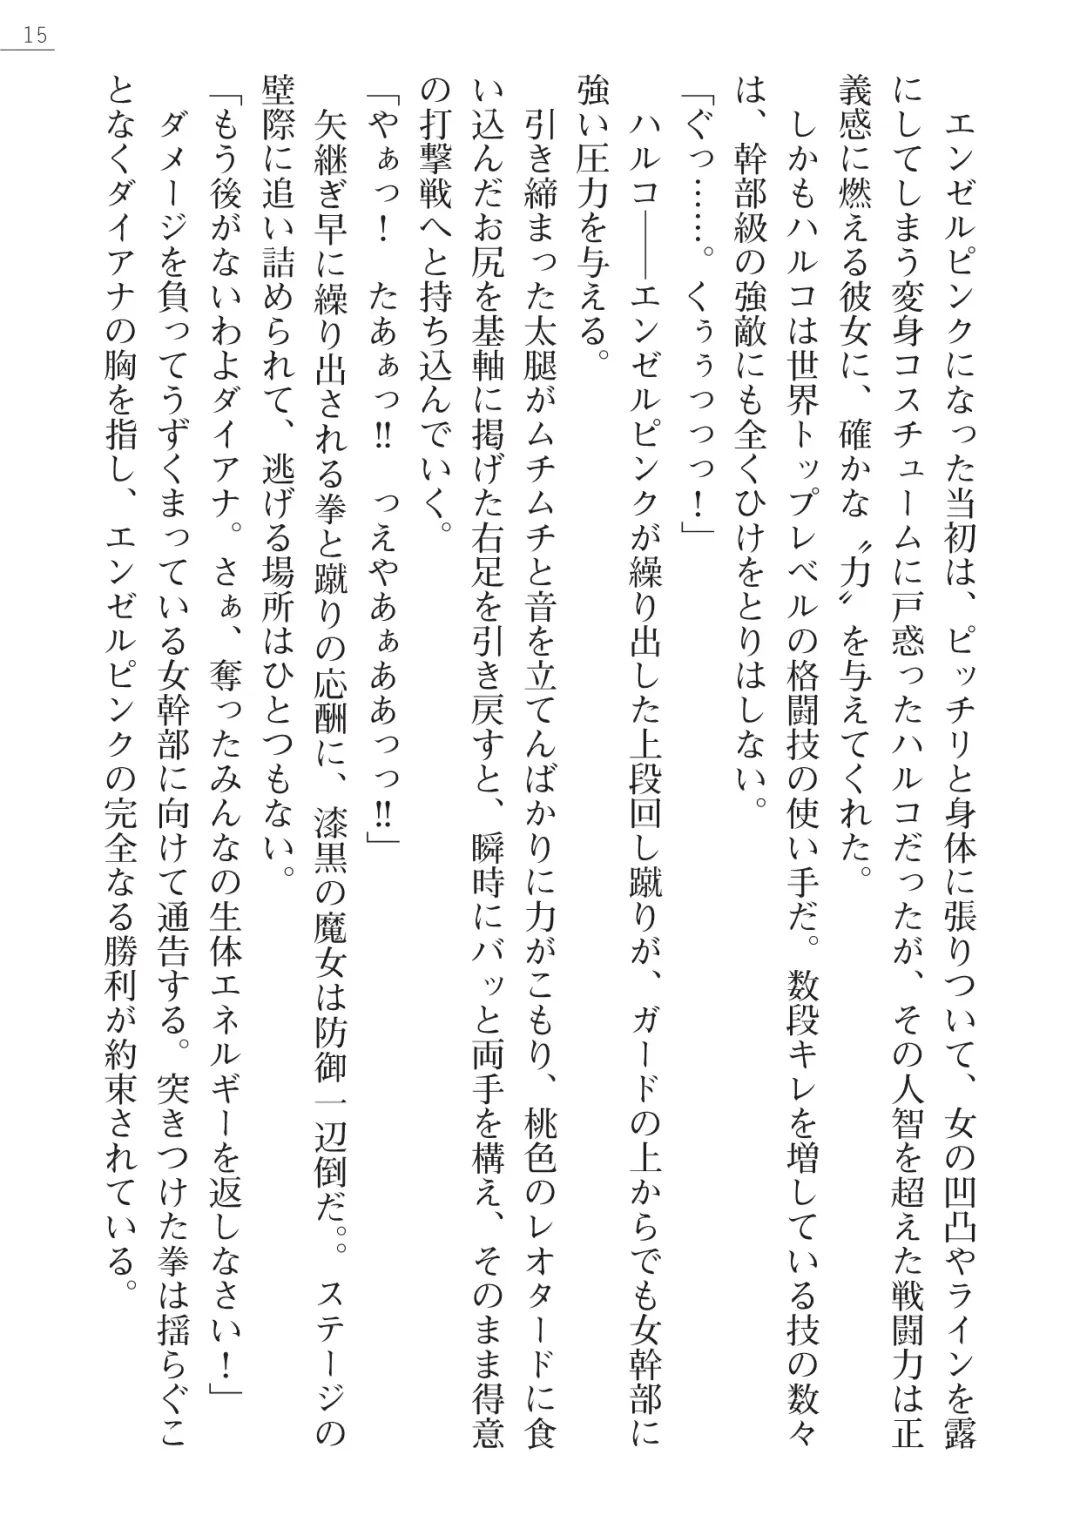 15
　エンゼルピンクになった当初は、ピッチリと身体に張りついて、女の凹凸やラインを露
にしてしまう変身コスチュームに戸惑ったハルコだったが、その人智を超えた戦闘力は正
義感に燃える彼女に、確かな〝力〟を与えてくれた。
　しかもハルコは世界トップレベルの格闘技の使い手だ。数段キレを増している技の数々
は、幹部級の強敵にも全くひけをとりはしない。
「ぐっ……。くぅぅっっっ！」
　ハルコ――エンゼルピンクが繰り出した上段回し蹴りが、ガードの上からでも女幹部に
強い圧力を与える。
　引き締まった太腿がムチムチと音を立てんばかりに力がこもり、桃色のレオタードに食
い込んだお尻を基軸に掲げた右足を引き戻すと、瞬時にバッと両手を構え、そのまま得意
の打撃戦へと持ち込んでいく。
「やぁっ！　たあぁっ!!　っえやあぁああっっ!!」
　矢継ぎ早に繰り出される拳と蹴りの応酬に、漆黒の魔女は防御一辺倒だ。。ステージの
壁際に追い詰められて、逃げる場所はひとつもない。
「もう後がないわよダイアナ。さぁ、奪ったみんなの生体エネルギーを返しなさい！」
　ダメージを負ってうずくまっている女幹部に向けて通告する。突きつけた拳は揺らぐこ
となくダイアナの胸を指し、エンゼルピンクの完全なる勝利が約束されている。